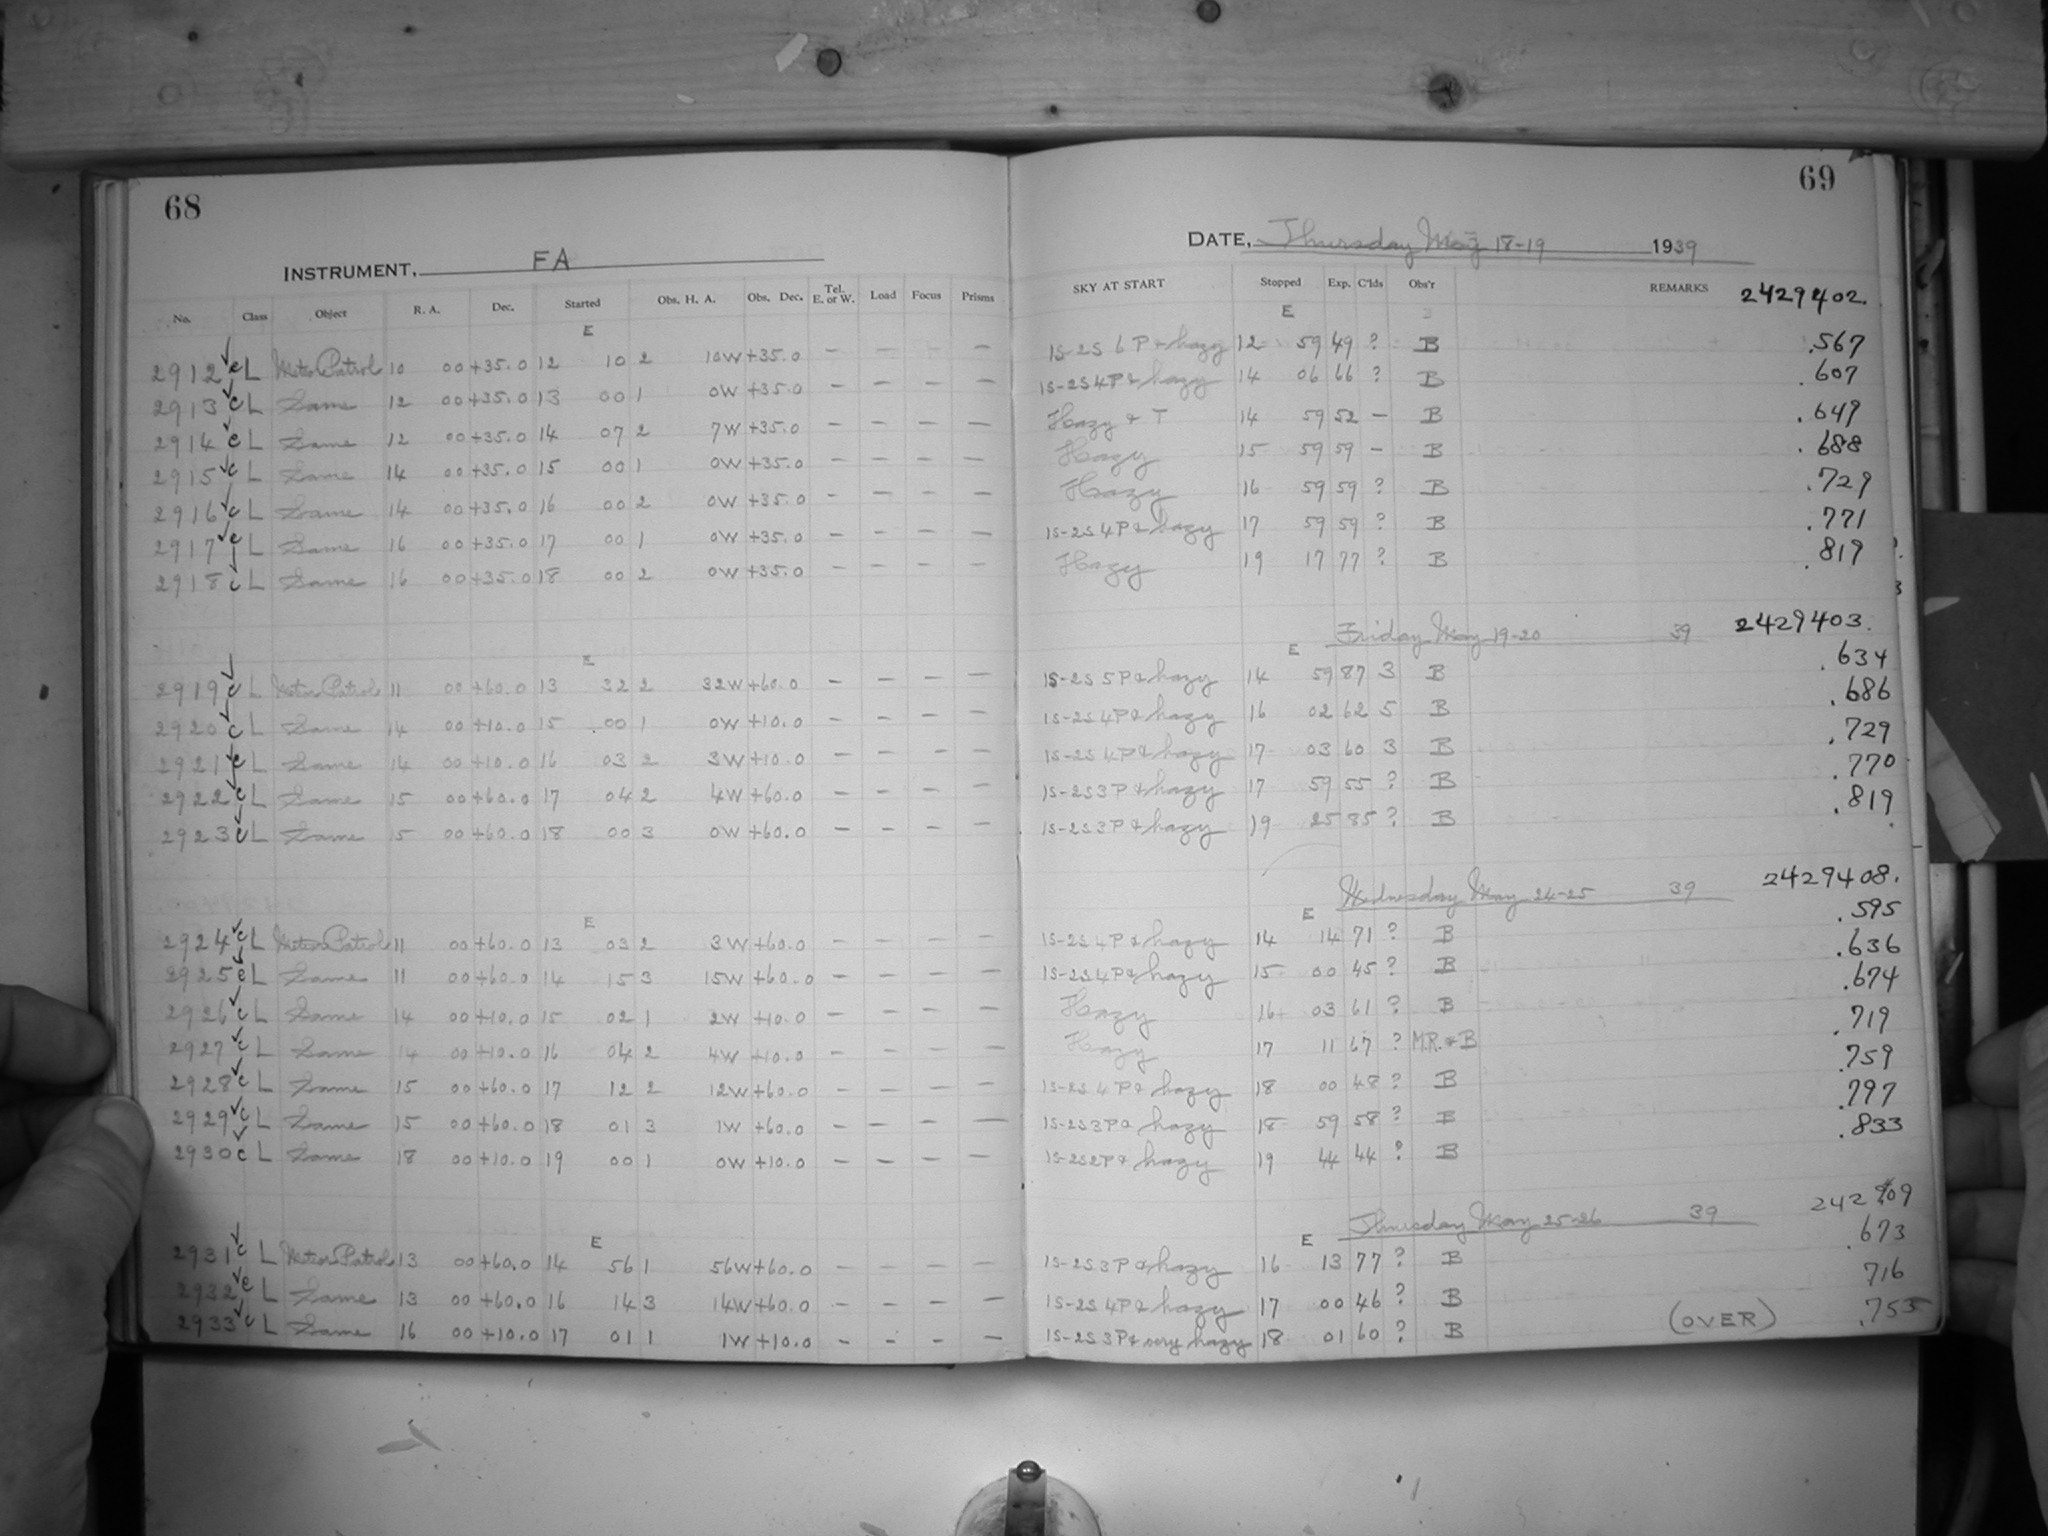 68
69
INSTRUMENT, FA
DATE, Thursday May 18-19 1939
No. Class Object R. A. Dec. Started Obs. H. A. Obs. Dec. Tel. E. or W. Load Focus Prisms SKY AT START Stopped Exp. C'lds Obs'r REMARKS 2429402.
E E
2912 c L Meteor Patrol 10 00 +35.0 12 10 2 10W +35.0 – – – 1S-2S 6P & hazy 12 59 49 ? B .567
2913 c L Same 12 00 +35.0 13 00 1 0W +35.0 – – – – 1S-2S 4P & hazy 14 06 66 ? B .607
2914 c L Same 12 00 +35.0 14 07 2 7W +35.0 – – – – Hazy & T 14 59 52 – B .649
2915 c L Same 14 00 +35.0 15 00 1 0W +35.0 – – – – Hazy 15 59 59 – B .688
2916 c L Same 14 00 +35.0 16 00 2 0W +35.0 – – – – Hazy 16 59 59 ? B .729
2917 c L Same 16 00 +35.0 17 00 1 0W +35.0 – – – – 1S-2S 4P & hazy 17 59 59 ? B .771
2918 c L Same 16 00 +35.0 18 00 2 0W +35.0 – – – – Hazy 19 17 77 ? B .819
Friday May 19-20 39 2429403.
E E
2919 c L Meteor Patrol 11 00 +60.0 13 32 2 32W +60.0 – – – – 1S-2S 5P & hazy 14 59 87 3 B .634
2920 c L Same 14 00 +10.0 15 00 1 0W +10.0 – – – – 1S-2S 4P & hazy 16 02 62 5 B .686
2921 c L Same 14 00 +10.0 16 03 2 3W +10.0 – – – – 1S-2S 4P & hazy 17 03 60 3 B .729
2922 c L Same 15 00 +60.0 17 04 2 4W +60.0 – – – – 1S-2S 3P & hazy 17 59 55 ? B .770
2923 c L Same 15 00 +60.0 18 00 3 0W +60.0 – – – – 1S-2S 3P & hazy 19 25 85 ? B .819
Wednesday May 24-25 39 2429408.
E E
2924 c L Meteor Patrol 11 00 +60.0 13 03 2 3W +60.0 – – – – 1S-2S 4P & hazy 14 14 71 ? B .595
2925 c L Same 11 00 +60.0 14 15 3 15W +60.0 – – – – 1S-2S 4P & hazy 15 00 45 ? B .636
2926 c L Same 14 00 +10.0 15 02 1 2W +10.0 – – – – Hazy 16 03 61 ? B .674
2927 c L Same 14 00 +10.0 16 04 2 4W +10.0 – – – – Hazy 17 11 67 ? M.R. & B .719
2928 c L Same 15 00 +60.0 17 12 2 12W +60.0 – – – – 1S-2S 4P & hazy 18 00 48 ? B .759
2929 c L Same 15 00 +60.0 18 01 3 1W +60.0 – – – – 1S-2S 3P & hazy 18 59 58 ? B .797
2930 c L Same 18 00 +10.0 19 00 1 0W +10.0 – – – – 1S-2S 2P & hazy 19 44 44 ? B .833
Thursday May 25-26 39
E E
2931 c L Meteor Patrol 13 00 +60.0 14 56 1 56W +60.0 – – – – 1S-2S 3P & hazy 16 13 77 ? B .673
2932 c L Same 13 00 +60.0 16 14 3 14W +60.0 – – – – 1S-2S 4P & hazy 17 00 46 ? B 716
2933 c L Same 16 00 +10.0 17 01 1 1W +10.0 – – – – 1S-2S 3P & very hazy 18 01 60 ? B (OVER) .755